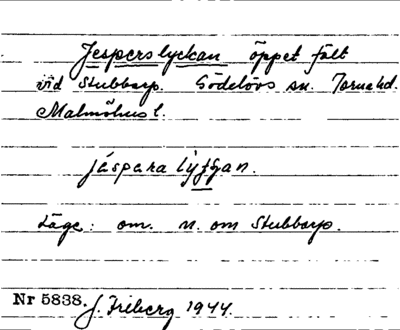 Jesperslyckan öppet fält
vid Stubbarp. Gödelövs sn. Torna hd.
Malmöhus l.
jáspara lyʒʒan.
Läge: om. n. om Stubbarp.
Nr 5838. J. Friberg 1944.